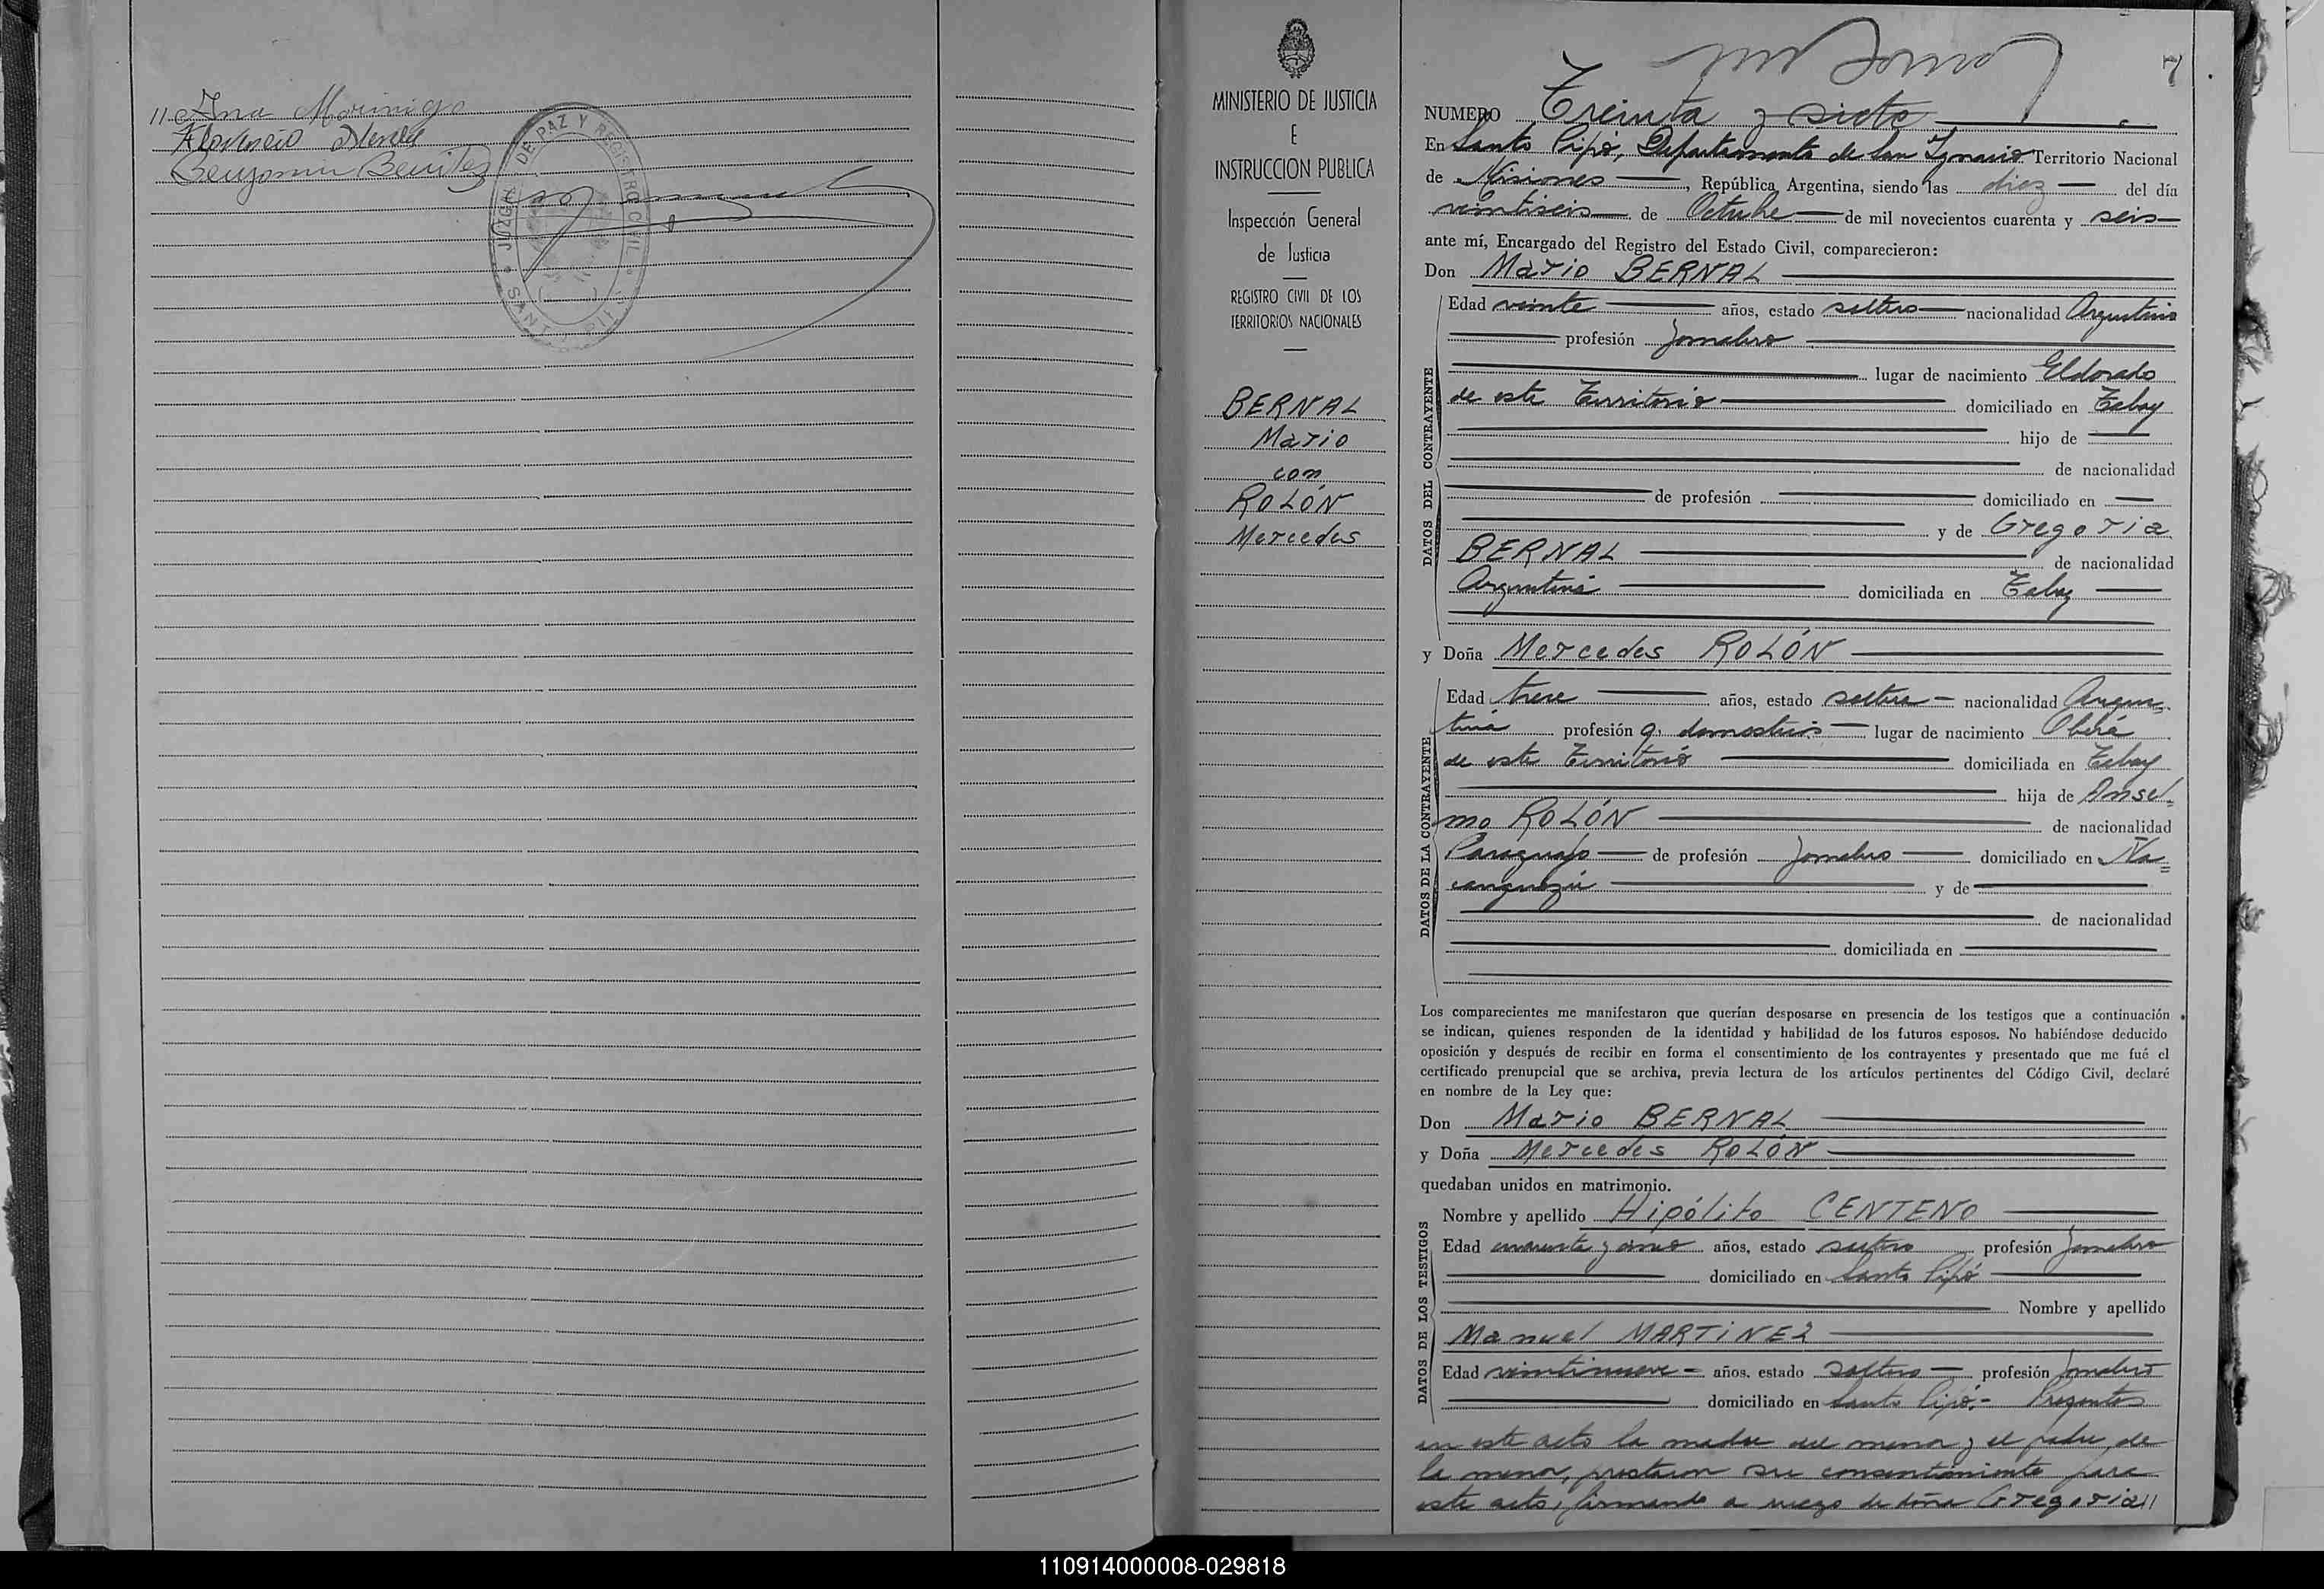 11 Ana Morinigo
Florencio
Benjamin Benitez
JUZGADO DE PAZ Y REGISTRO CIVIL
SANTO PIPÓ
MINISTERIO DE JUSTICIA
E
INSTRUCCION PUBLICA
Inspección General
de Justicia
REGISTRO CIVIL DE LOS
TERRITORIOS NACIONALES
BERNAL
Mario
con
ROLÓN
Mercedes
7
NUMERO Treinta y siete
En Santo Pipó, Departamento de San Ignacio Territorio Nacional
de Misiones, República Argentina, siendo las diez del día
veintiseis de Octubre de mil novecientos cuarenta y seis
ante mí, Encargado del Registro del Estado Civil, comparecieron:
Don Mario BERNAL
DATOS DEL CONTRAYENTE
Edad veinte años, estado soltero nacionalidad Argentino
profesión Jornalero
lugar de nacimiento Eldorado
de este Territorio domiciliado en Tabay
hijo de
de nacionalidad
de profesión domiciliado en
y de Gregoria
BERNAL de nacionalidad
Argentina domiciliada en Tabay
y Doña Mercedes ROLÓN
DATOS DE LA CONTRAYENTE
Edad trece años, estado soltera nacionalidad Argen=
tina profesión q. domesticos lugar de nacimiento Oberá
de este Territorio domiciliada en Tabay
hija de Ansel=
mo ROLÓN de nacionalidad
Paraguayo de profesión Jornalero domiciliado en Ña=
canguazú y de
de nacionalidad
domiciliada en
Los comparecientes me manifestaron que querían desposarse en presencia de los testigos que a continuación
se indican, quienes responden de la identidad y habilidad de los futuros esposos. No habiéndose deducido
oposición y después de recibir en forma el consentimiento de los contrayentes y presentado que me fué el
certificado prenupcial que se archiva, previa lectura de los artículos pertinentes del Código Civil, declaré
en nombre de la Ley que:
Don Mario BERNAL
y Doña Mercedes ROLÓN
quedaban unidos en matrimonio.
DATOS DE LOS TESTIGOS
Nombre y apellido Hipólito CENTENO
Edad cuarenta y cinco años, estado soltero profesión Jornalero
domiciliado en Santo Pipó
Nombre y apellido
Manuel MARTINEZ
Edad veintinueve = años, estado soltero profesión Jornalero
domiciliado en Santo Pipó.- Presentes
en este acto la madre del menor y el padre de
la menor, prestaron su consentimiento para
este acto, firmando a ruego de doña Gregoria//
110914000008-029818